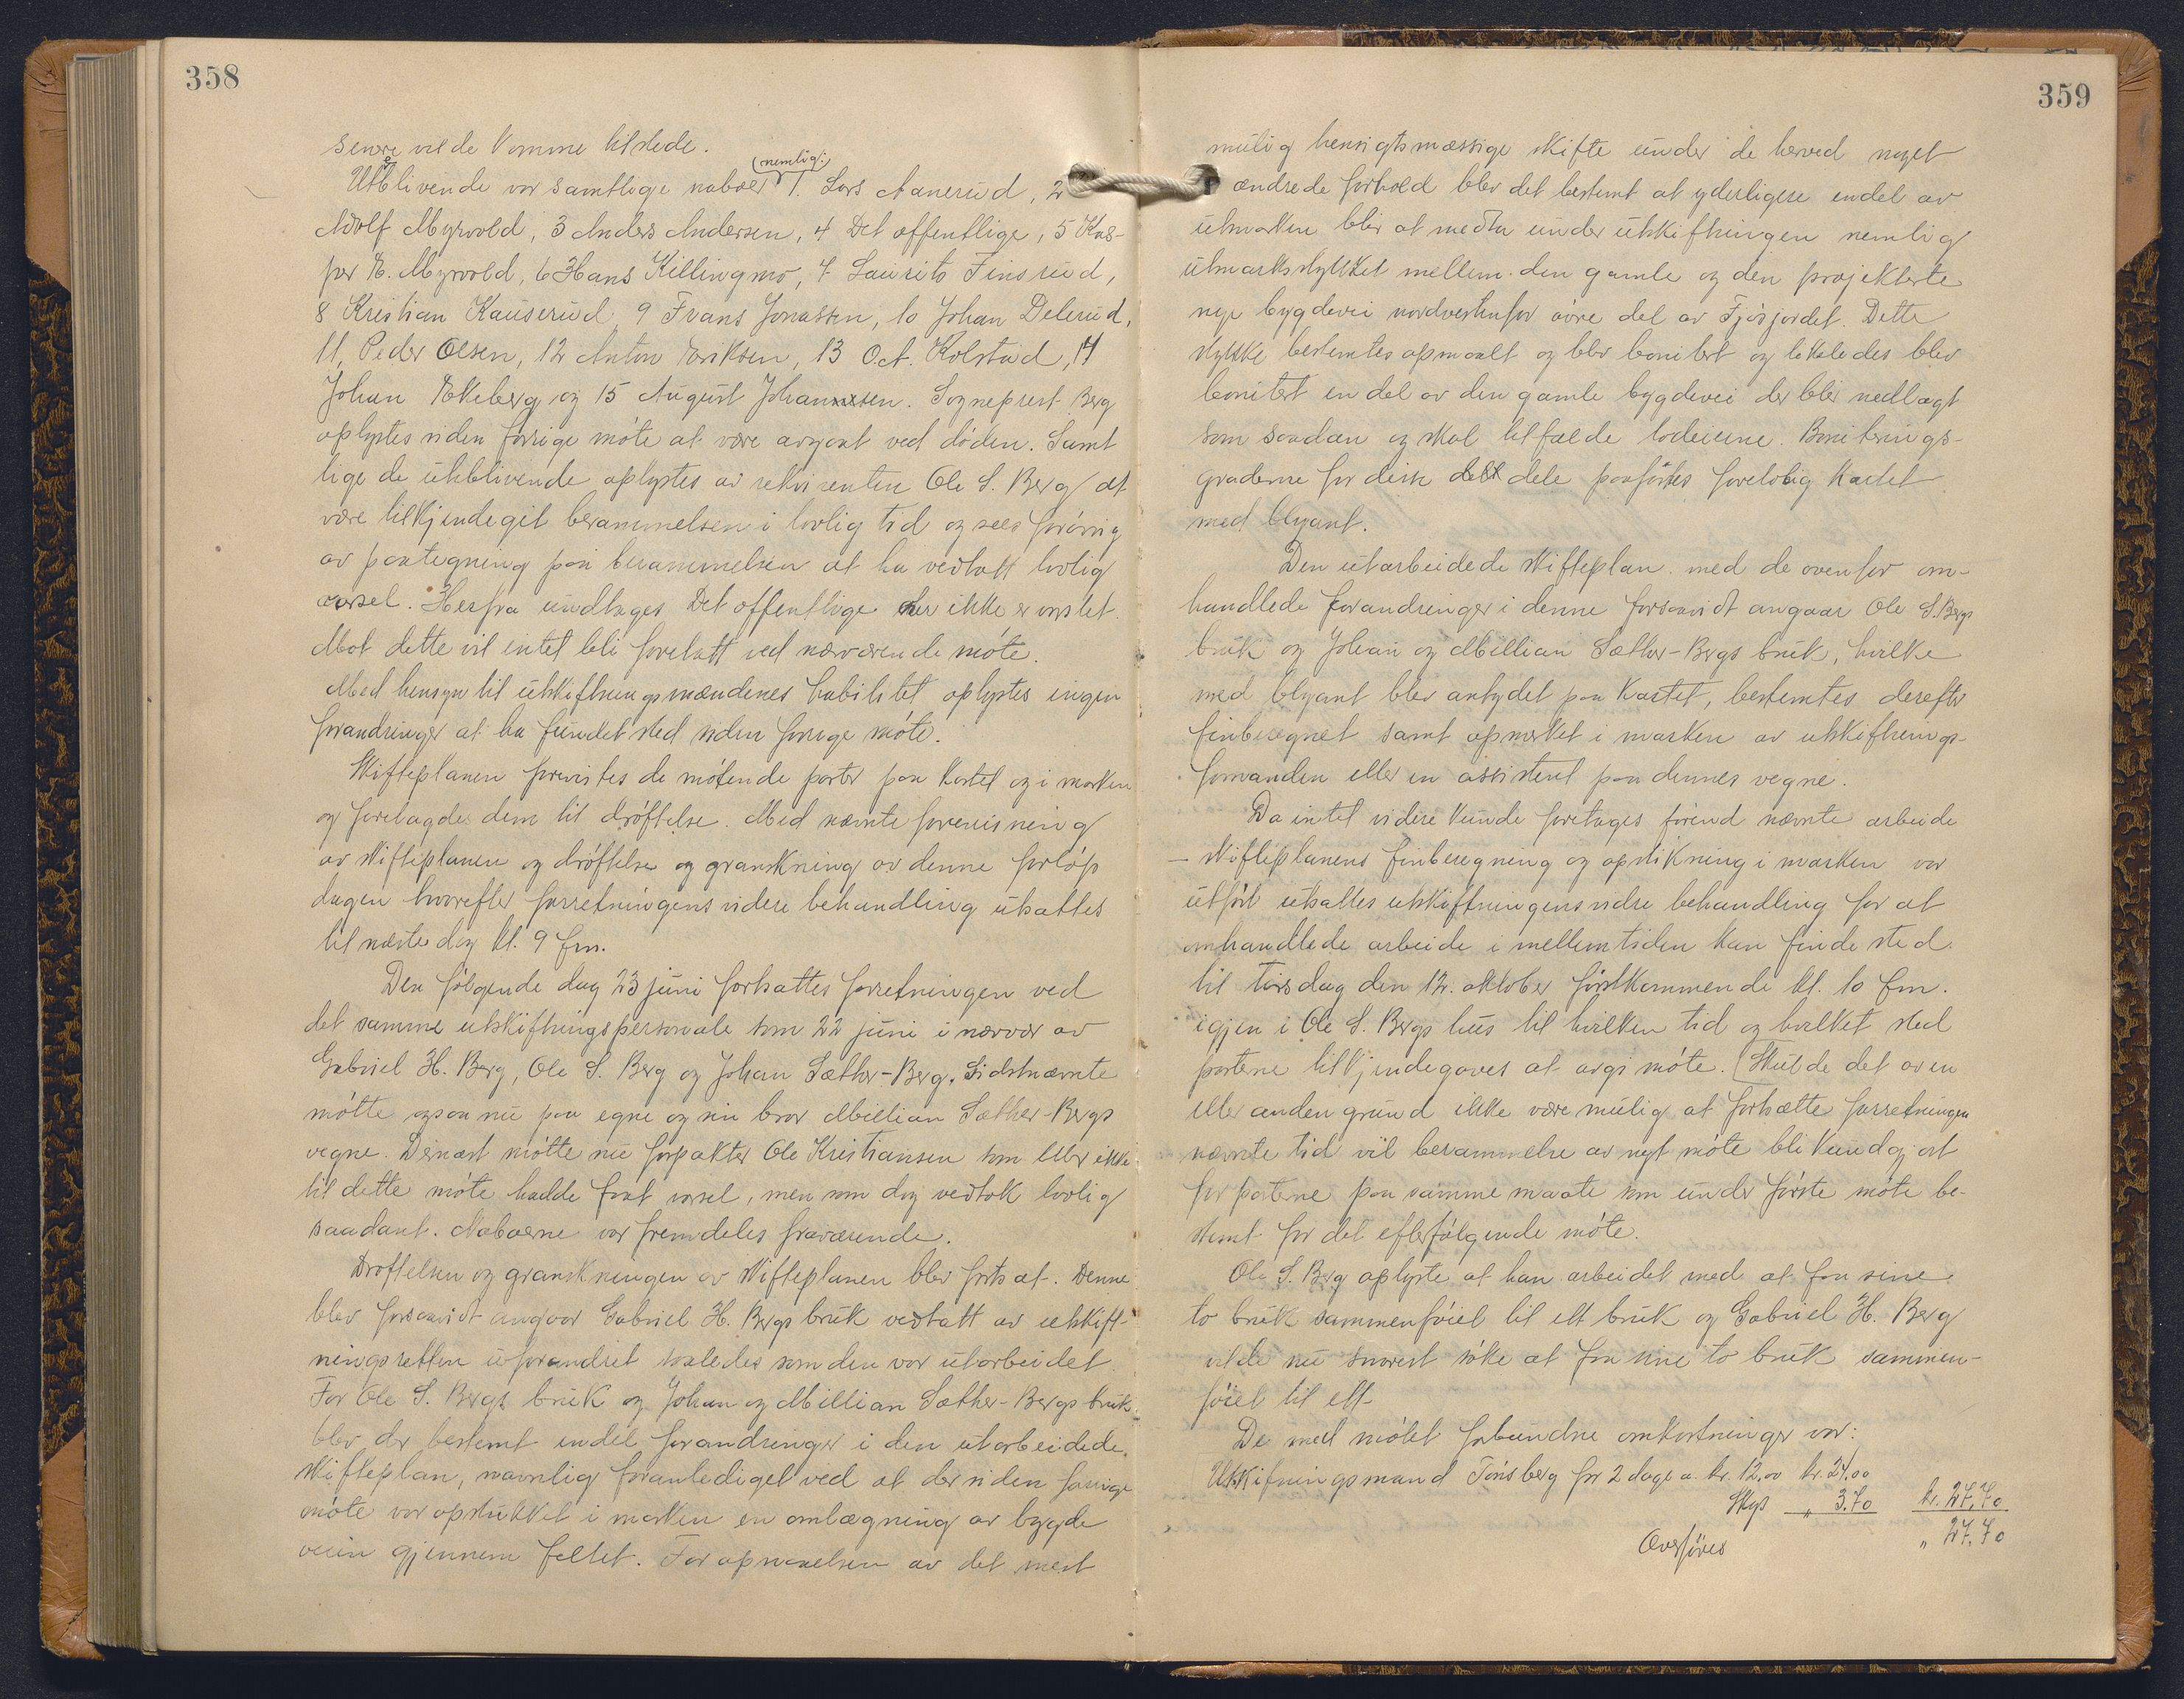 358
senere vil de komme tilstede.
(nemlig:)
Utblivende var samtlige naboer 1. Lars Aanerud, 2
Adolf Myrvold, 3 Anders Andersen, 4 Det offentlige, 5 Kas-
per E. Myrvold, 6 Hans Killingmo, 7 Laurits Finsrud,
8 Kristian Kauserud 9 Frans Jonassen, 10 Johan Delerud,
11, Peder Olsen, 12 Anton Eriksen, 13 O.A. Kolstad, 14
Johan Ekeberg og 15 August Johannesen. Sogneprest Berg
oplystes siden forrige møte at være avgaat ved døden. Samt
lige de utblivende oplystes av rekvirenten Ole S. Berg at
være tilkjendegit berammelsen i lovlig tid og sees forøvrig
av paategning paa berammelsen at ha vedtatt lovlig
varsel. Herfra undtages Det offentlige der ikke er varslet.
Mot dette vil intet bli foretatt ved nærværende møte.
Med hensyn til utskiftningsmændenes habilitet oplystes ingen
forandringer at ha fundet sted siden forrige møte.
Skifteplanen forevistes de møtende parter paa kartet og i marken
og forelagdes dem til drøftelse. Med nævnte forevisning
av skifteplanen og drøftelse og granskning av denne forløp
dagen hvorefter forretningens videre behandling utsattes
til næste dag kl. 9 fm.
Den følgende dag 23 juni fortsattes forretningen ved
det samme utskiftningspersonale som 22 juni i nærvær av
Gabriel H. Berg, Ole S. Berg og Johan Sæther-Berg. Sidstnævnte
møtte ogsaa nu paa egne og sin bror Millian Sæther-Bergs
vegne. Dernæst møtte nu forpakter Ole Kristiansen som eller ikke
til dette møte hadde faat varsel, men som dog vedtok lovlig
saadant. Naboerne var fremdeles fraværende.
Drøftelsen og granskningen av skifteplanen blev fortsat. Denne
blev forsaavidt angaar Gabriel H. Bergs bruk vedtatt av utskift-
ningsretten uforandret saaledes som den var utarbeidet.
For Ole S. Bergs bruk og Johan og Millian Sæther-Bergs bruk
blev der bestemt endel forandringer i den utarbeidede
skifteplan, navnlig foranlediget ved at der siden forrige
møte var opstukket i marken en omlægning av bygde
veien gjennem feltet. For opnaaelsen av det mest
359
mulig hensigtsmæssige skifte under de herved noget
ændrede forhold blev det bestemt at yderligere endel av
utmarken blir at medta under utskiftningen nemlig
utmarksstykket mellem den gamle og den projekterte
nye bygdevei nordvestenfor øvre del av Fjøsjordet. Dette
stykke bestemtes opmaalt og blev bonitert og likeledes blev
bonitert en del av den gamle bygdevei der blir nedlagt
som saadan og skal tilfalde lodeierne. Boniterings-
graderne for disse dele paaførtes foreløbig kartet
med blyant.
Den utarbeidede skifteplan med de ovenfor om-
handlede forandringer i denne forsaavidt angaar Ole S. Bergs
bruk og Johan og Millian Sæther-Bergs bruk, hvilke
med blyant blev antydet paa kartet, bestemtes derefter
finberegnet samt opmerket i marken av utskiftnings-
formanden eller en assistent paa dennes vegne.
Da intet videre kunde foretages førend nævnte arbeide
- skifteplanens finberegning og opstikning i marken var
utført utsattes utskiftningens videre behandling for at
omhandlede arbeide i mellemtiden kan finde sted
til tirsdag den 12. oktober førstkommende kl. 10 fm.
igjen i Ole S. Bergs hus til hvilken tid og hvilket sted
parterne tilkjendegaves at avgi møte. Skulde det av en
eller anden grund ikke være mulig at fortsætte forretningen
nævnte tid vil berammelse av nyt møte bli kundgjort
for parterne paa samme maate som under første møte be-
stemt for det efterfølgende møte.
Ole S. Berg oplyste at han arbeidet med at faa sine
to bruk sammenføiet til ett bruk og Gabriel H. Berg
vilde nu snarest søke at faa sine to bruk sammen-
føiet til ett.
De med møtet forbundne omkostninger var:
Utskiftningsmand Tønsberg for 2 dage a kr. 12.00 kr. 24.00
Skyds " 3.70 kr. 27.70
Overføres " 27.70